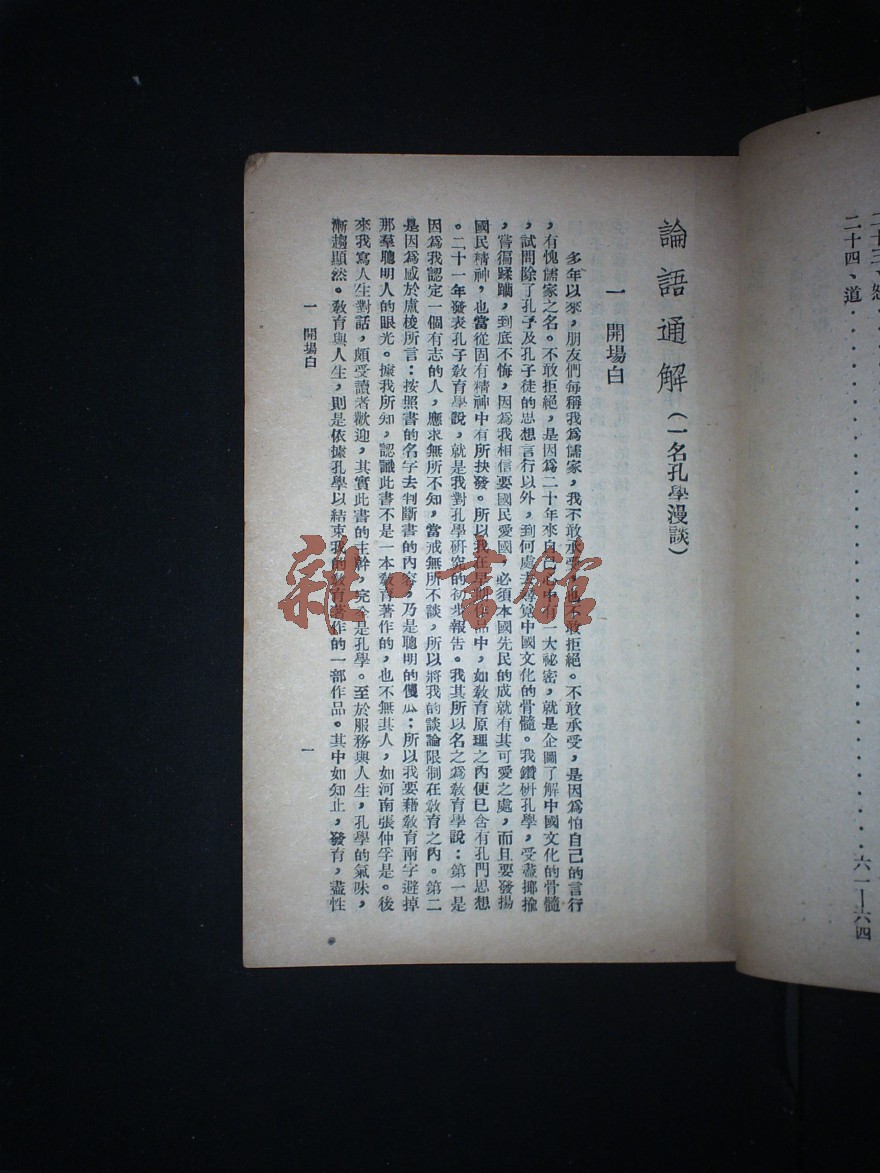 二十四、道・・・・・・・・・・・・・・・・六一—六四
論語通解(一名孔學漫談)
一 開場白
多年以來,朋友們每稱我爲儒家,我不敢承受,也不敢拒絕。不敢承受,是因爲怕自己的言行
,有愧儒家之名。不敢拒絕,是因爲二十年來自己心中有一大祕密,就是企圖了解中國文化的骨髓
,試問除了孔子及孔子徒的思想言行以外,到何處去尋覓中國文化的骨髓。我鑽研孔學,受盡揶揄
,嘗徧蹂躪,到底不悔,因爲我相信要國民愛國,必須本國先民的成就有其可愛之處,而且要發揚
國民精神,也當從固有精神中有所抉發。所以我在早期作品中,如敎育原理之內便已含有孔門思想
。二十一年發表孔子敎育學說,就是我對孔學研究的初步報告。我其所以名之爲敎育學說:第一是
因爲我認定一個有志的人,應求無所不知,當戒無所不談,所以將我的談論限制在敎育之內。第二
是因爲感於盧梭所言:按照書的名字去判斷書的內容,乃是聰明的傻瓜;所以我要藉敎育兩字避掉
那羣聰明人的眼光。據我所知,認識此書不是一本敎育著作的,也不無其人,如河南張仲孚是。後
來我寫人生對話,頗受讀者歡迎,其實此書的主幹,完全是孔學。至於服務與人生,孔學的氣味,
漸趨顯然。敎育與人生,則是依據孔學以結束我的敎育著作的一部作品。其中如知止,發育,盡性
一 開場白
一
雜·書館